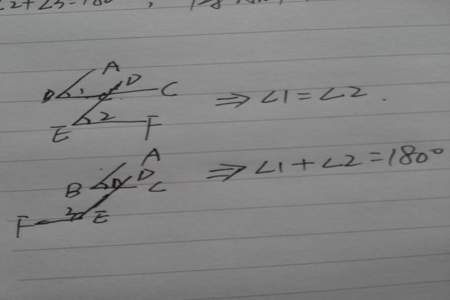 ∠2+∠3=180°,
A
D
B 1 C
E 2 F
⇒ ∠1=∠2.
A
B 1 D C
F 2 E
⇒ ∠1+∠2=180°